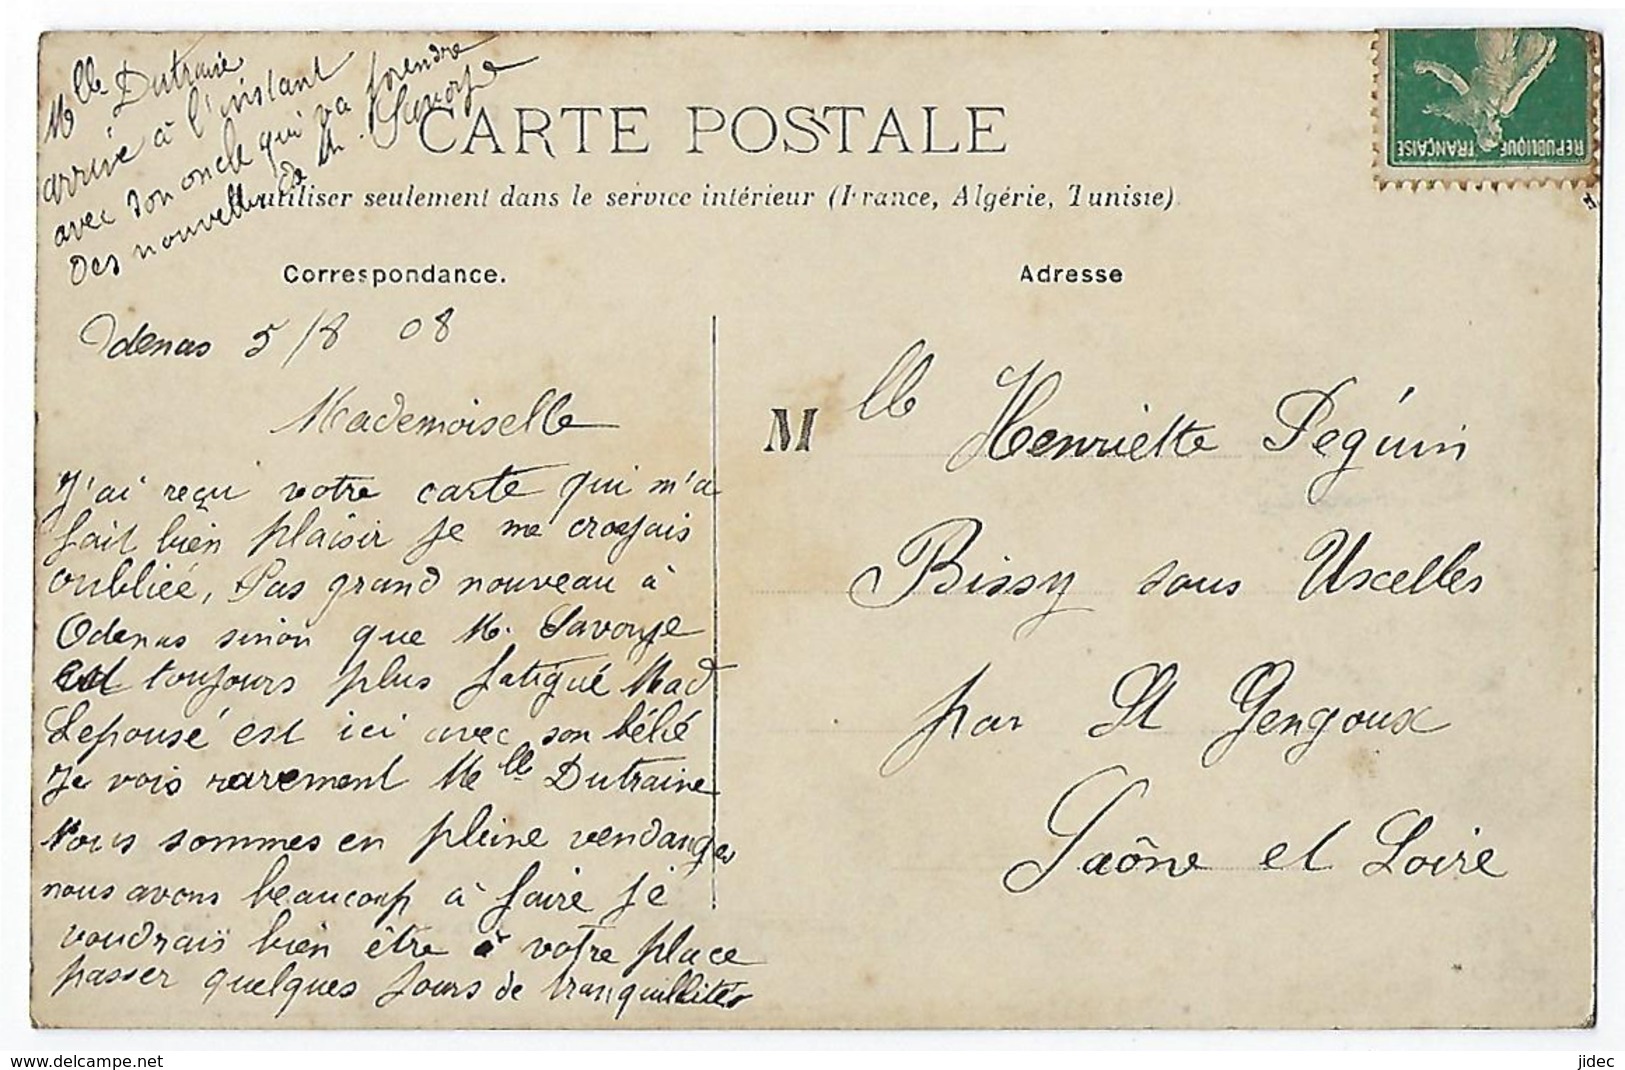 Mlle Dutraine
arrive à l'instant
avec son oncle qui va prendre
des nouvelles de M. Savoye
CARTE POSTALE
utiliser seulement dans le service intérieur (France, Algérie, Tunisie)
Correspondance.
Odenas 5/8 08
Mademoiselle
J'ai reçu votre carte qui m'a
fait bien plaisir je me croyais
oubliée, Pas grand nouveau à
Odenas sinon que M. Savoye
est toujours plus fatigué Mad
Lepousé est ici avec son bébé
Je vois rarement Mlle Dutraine
Nous sommes en pleine vendanges
nous avons beaucoup à faire je
voudrais bien être à votre place
passer quelques jours de tranquillités
Adresse
Mlle Henriette Peguin
Bissy sous Uxcelles
par St Gengoux
Saône et Loire
REPUBLIQUE FRANÇAISE
www.delcampe.net
jidec